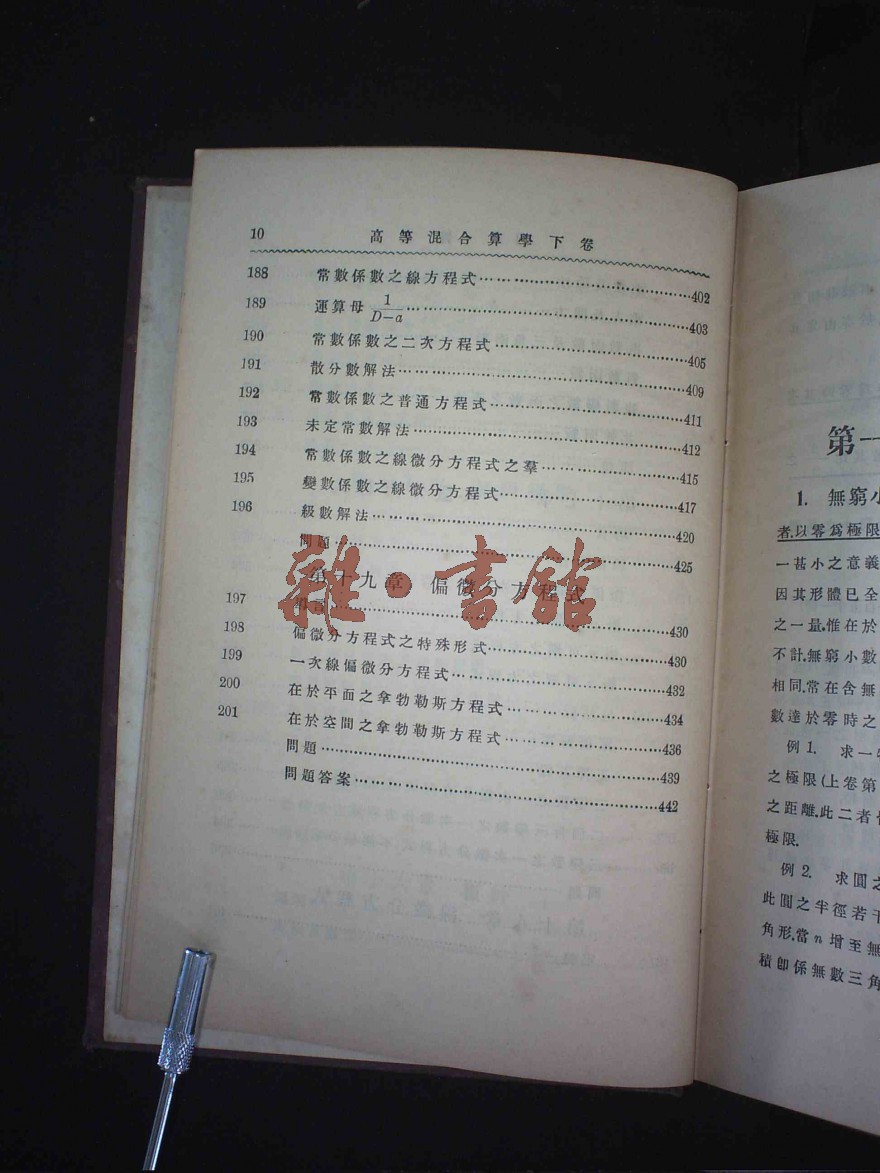 10 高等混合算學下卷
188 常數係數之線方程式………402
189 運算母 1/D−a………403
190 常數係數之二次方程式………405
191 散分數解法………409
192 常數係數之普通方程式………411
193 未定常數解法………412
194 常數係數之線微分方程式之羣………415
195 變數係數之線微分方程式………417
196 級數解法………420
問題………425
第十九章 偏微分方程式
197 導言………430
198 偏微分方程式之特殊形式………430
199 一次線偏微分方程式………432
200 在於平面之拿勃勒斯方程式………434
201 在於空間之拿勃勒斯方程式………436
問題………439
問題答案………442
雜·書館
第一
1. 無窮小
者,以零爲極限
一甚小之意義
因其形體已全
之一量,惟在於
不計,無窮小數
相同,常在含無
數達於零時之
例1. 求一
之極限(上卷第
之距離,此二者
極限.
例2. 求圓之
此圓之半徑若干
角形,當n增至無
積卽係無數三角